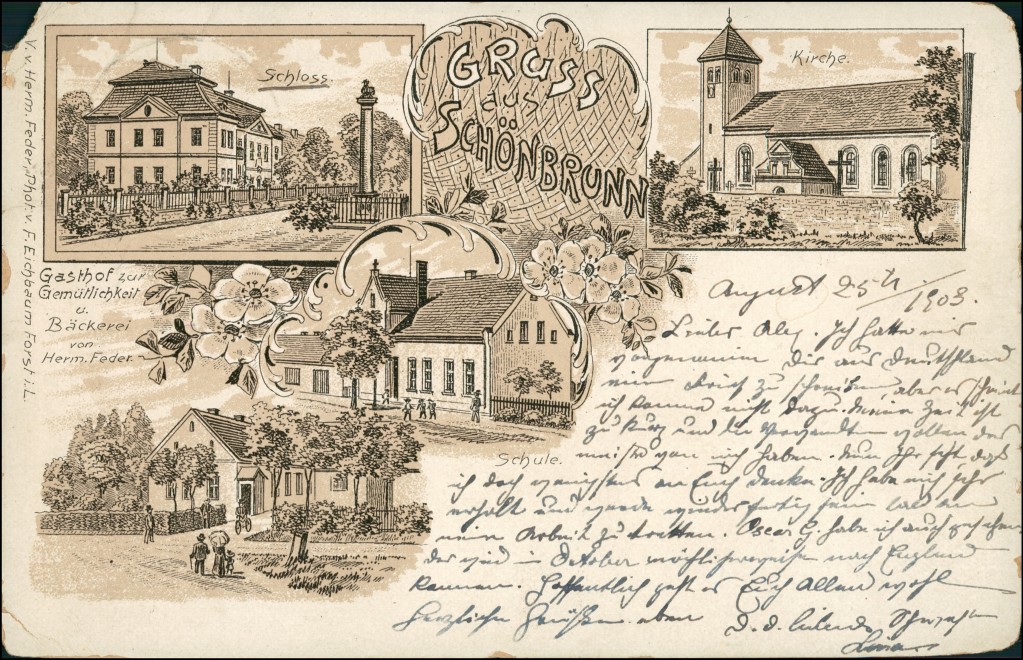 V. v. Herm. Feder, Phot. v. F. Eichbaum Forst i. L.
Schloss.
GRUSS
aus
SCHÖNBRUNN
Kirche.
Gasthof zur
Gemütlichkeit
u.
Bäckerei
von
Herm. Feder.
Schule.
August 25th
1903.
Lieber Alex. Ich hatte mir
vorgenommen Dir aus Deutschland
einen Brief zu schreiben, aber es scheint
ich komme nicht dazu. Meine Zeit ist
zu kurz und die Verwandten wollen das
meiste von mich haben. Nun Ihr seht daß
ich doch wenigstens an Euch denke. Ich habe mich sehr
erholt und werde
meine Arbeit zu treten. Oscar G. habe ich auch gesehen
der wird in October möglicherweise nach England
kommen. Hoffentlich geht es Euch Allen wohl
Herzliche Grüße